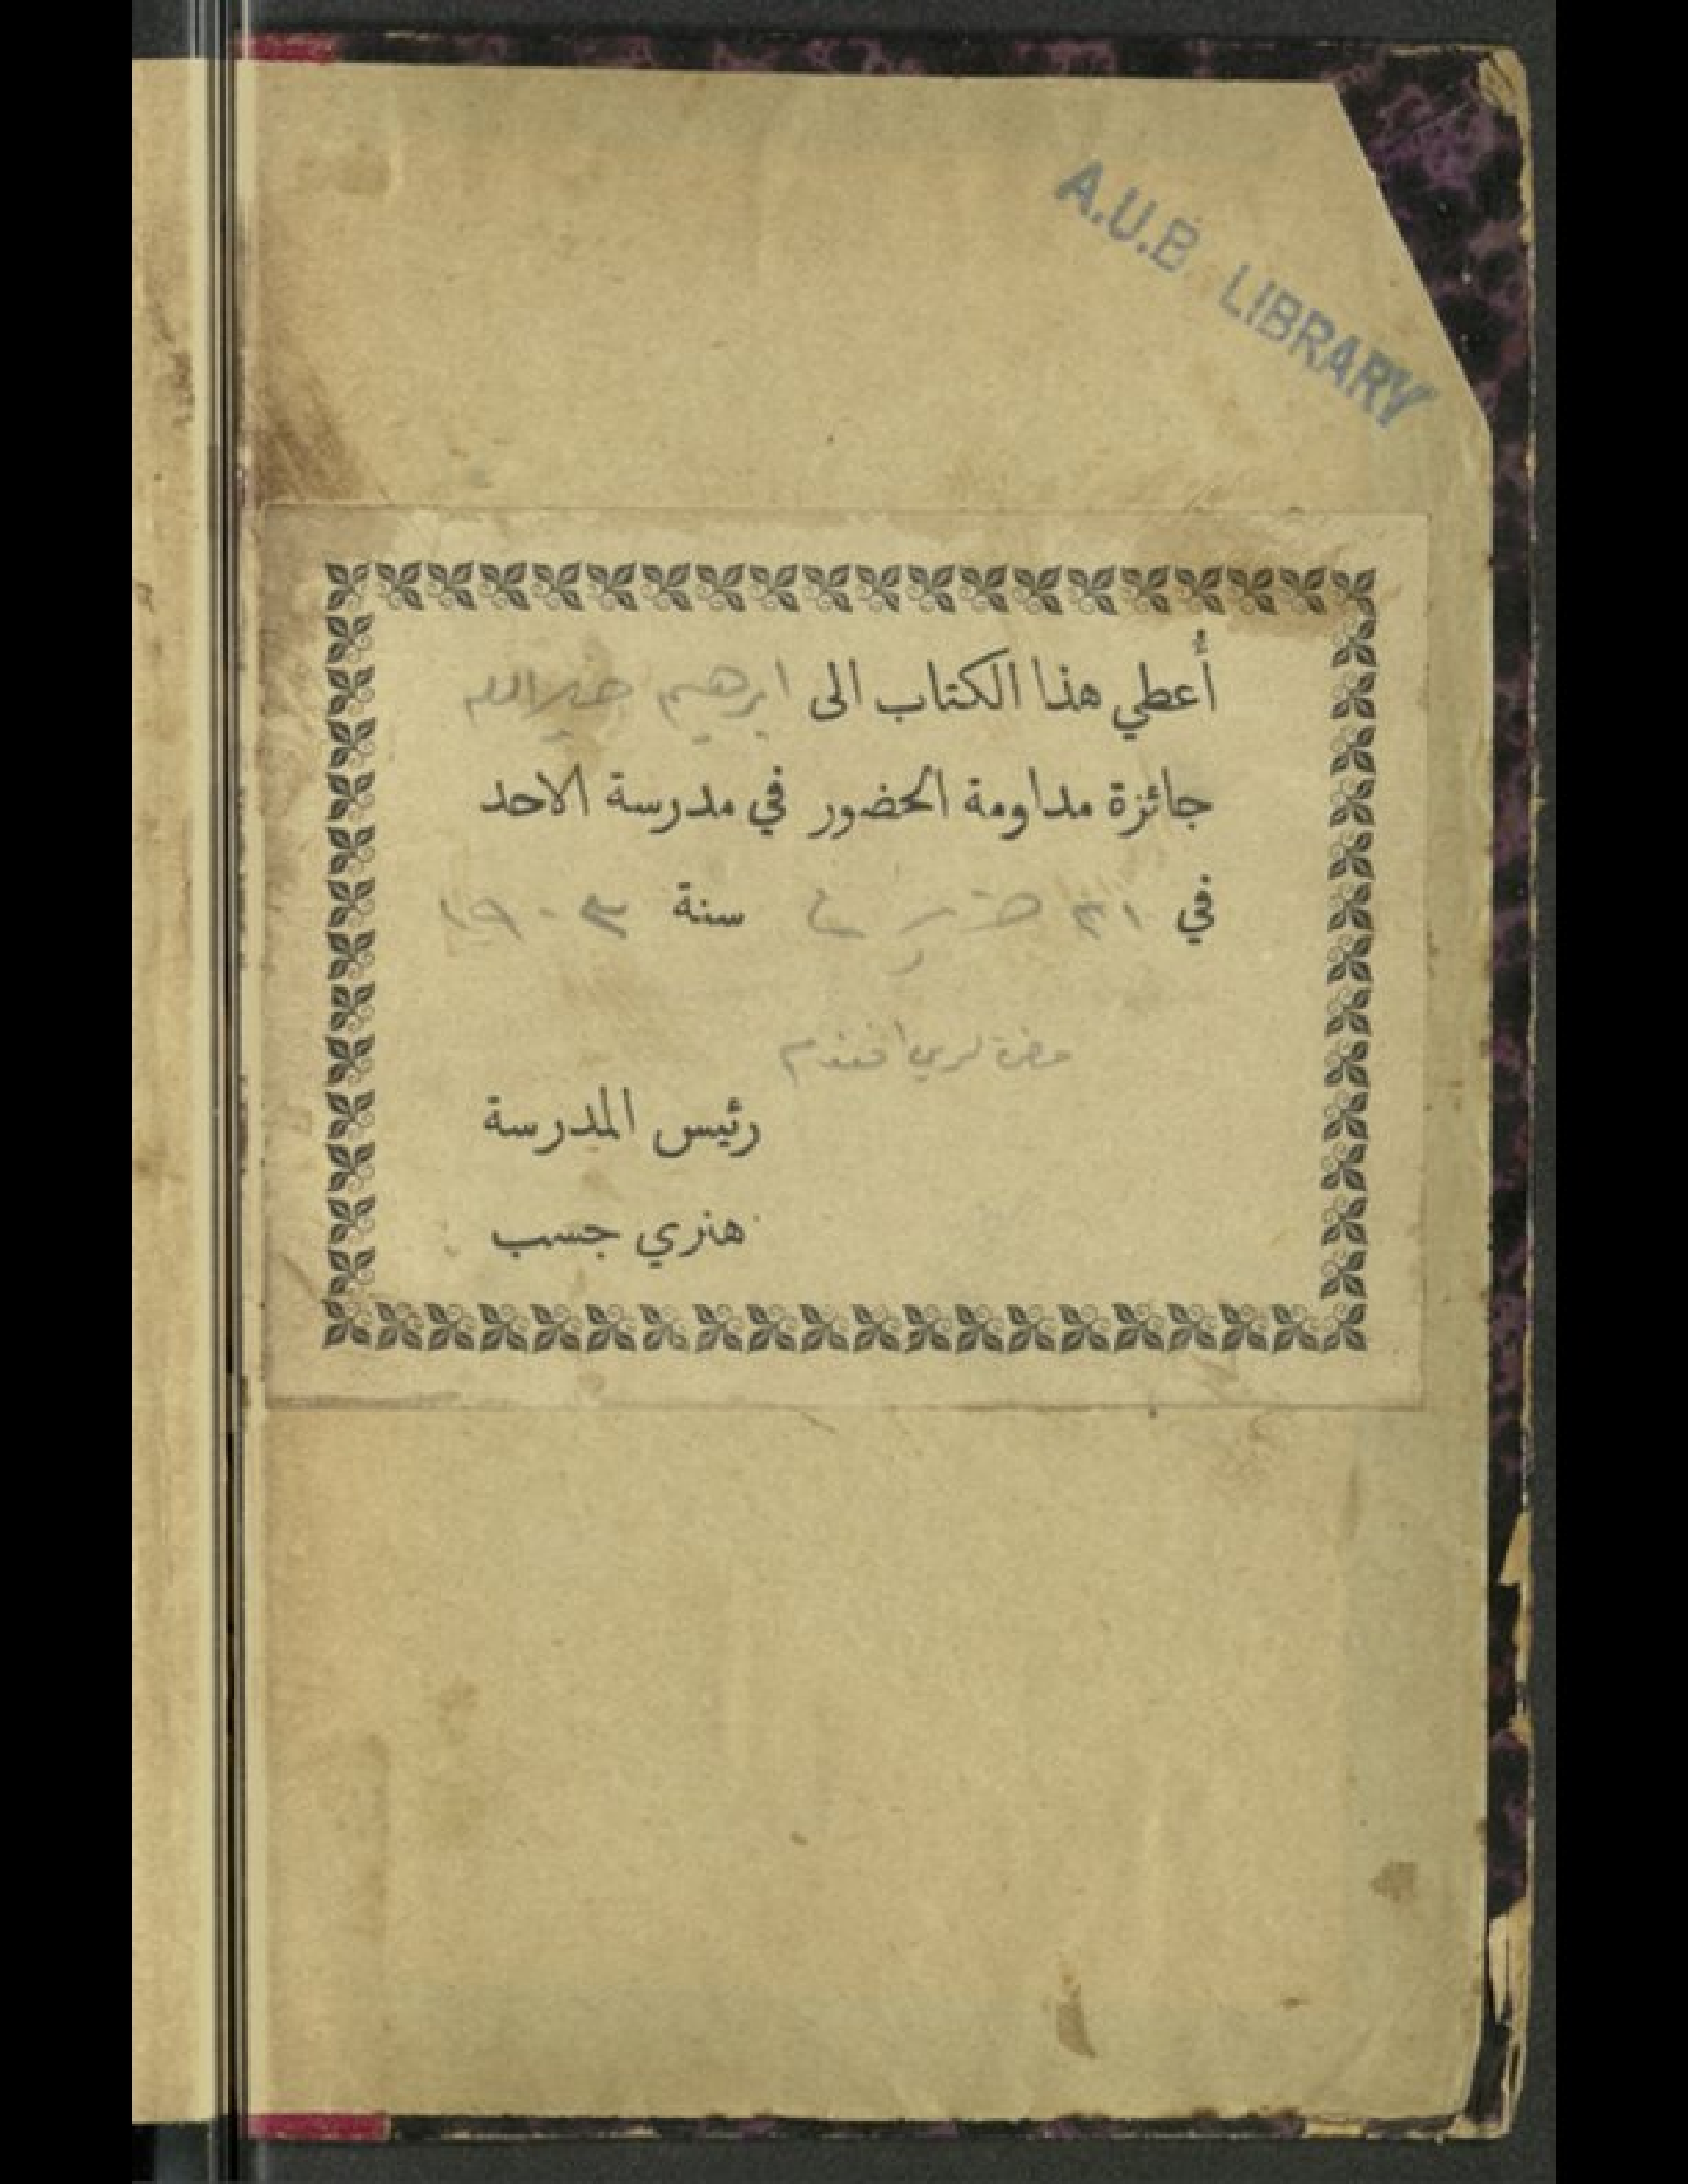 A.U.B LIBRARY
أُعطي هذا الكتاب الى ابرهيم خيرالله
جائزة مداومة الحضور في مدرسة الاحد
في ٢١ سنة ١٩٠٣
رئيس المدرسة
هنري جسب